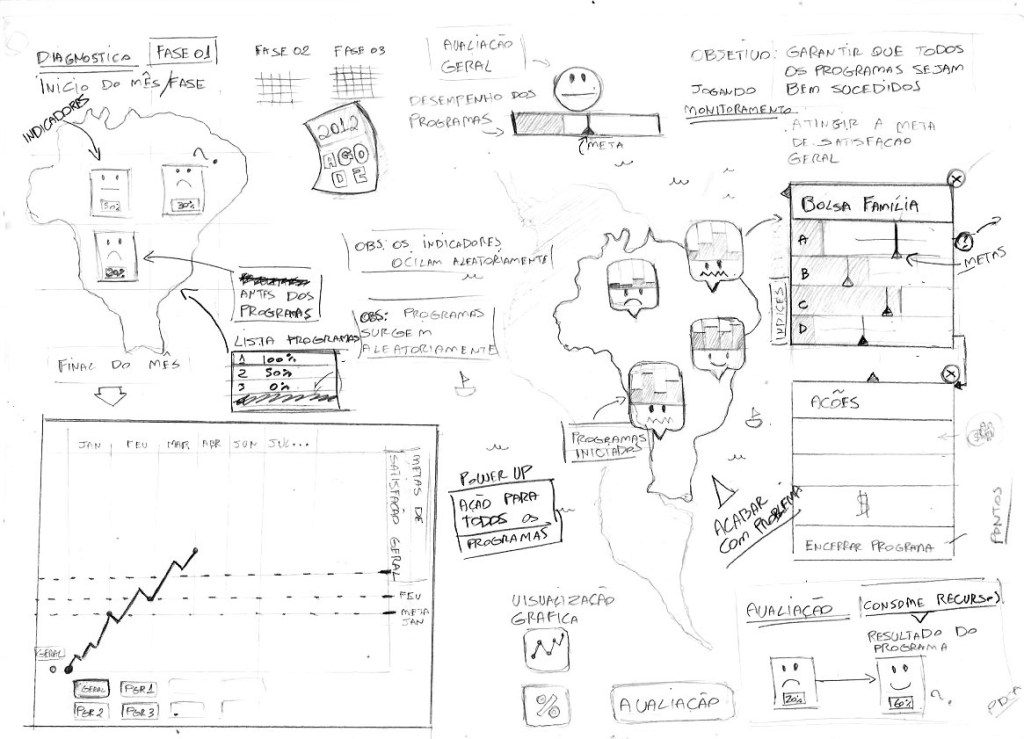 DIAGNOSTICO
FASE 01
FASE 02
FASE 03
INICIO DO MÊS/FASE
INDICADORES
30%
20%
2012
AGO
DEZ
AVALIAÇÃO
GERAL
DESEMPENHO DOS
PROGRAMAS
META
OBJETIVO: GARANTIR QUE TODOS
OS PROGRAMAS SEJAM
BEM SUCEDIDOS
JOGANDO
MONITORAMENTO
. ATINGIR A META
DE SATISFAÇÃO
GERAL
BOLSA FAMÍLIA
A
B
C
D
INDICES
METAS
OBS: OS INDICADORES
OCILAM ALEATORIAMENTE
OBS: PROGRAMAS
SURGEM
ALEATORIAMENTE
ANTES DOS
PROGRAMAS
LISTA PROGRAMAS
1 100%
2 50%
3 0%
FINAL DO MÊS
JAN FEV MAR ABR JUN JUL...
METAS DE
SATISFAÇÃO GERAL
FEV
META
JAN
GERAL
0
GERAL
PGR 1
PGR 2
PGR 3
PROGRAMAS
INICIADOS
POWER UP
AÇÃO PARA
TODOS OS
PROGRAMAS
ACABAR
COM PROBLEMA
AÇÕES
$
ENCERRAR PROGRAMA
PONTOS
VISUALIZAÇÃO
GRÁFICA
%
AVALIAÇÃO
AVALIAÇÃO
(CONSOME RECURSOS)
RESULTADO DO
PROGRAMA
20%
60%
?